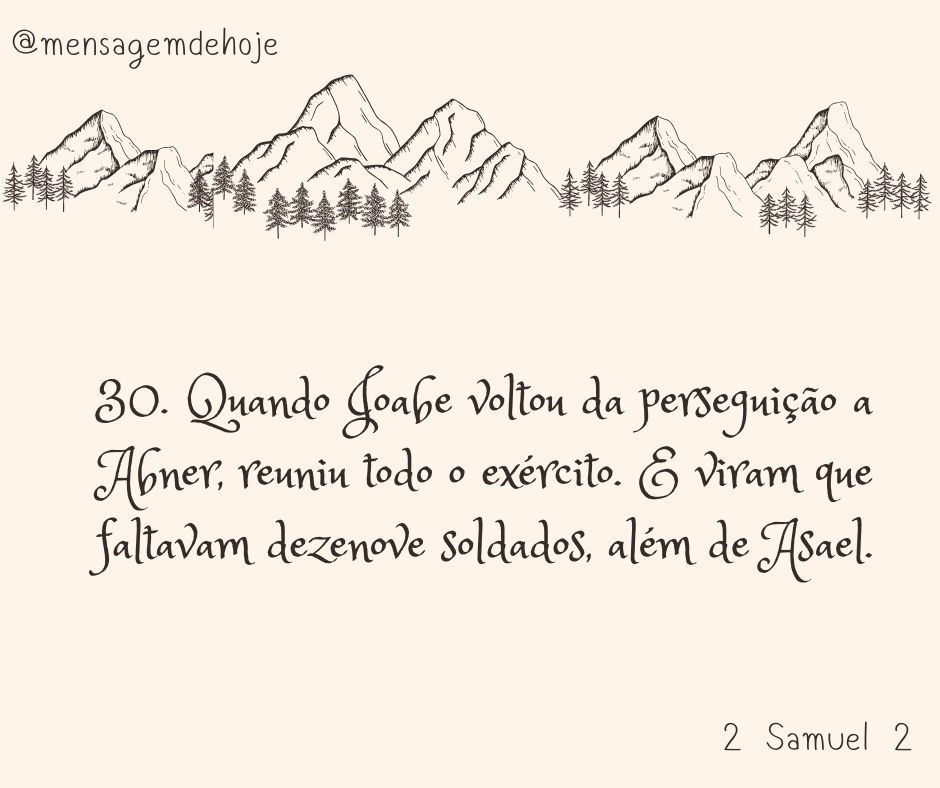 @mensagemdehoje
30. Quando Joabe voltou da perseguição a
Abner, reuniu todo o exército. E viram que
faltavam dezenove soldados, além de Asael.
2 Samuel 2